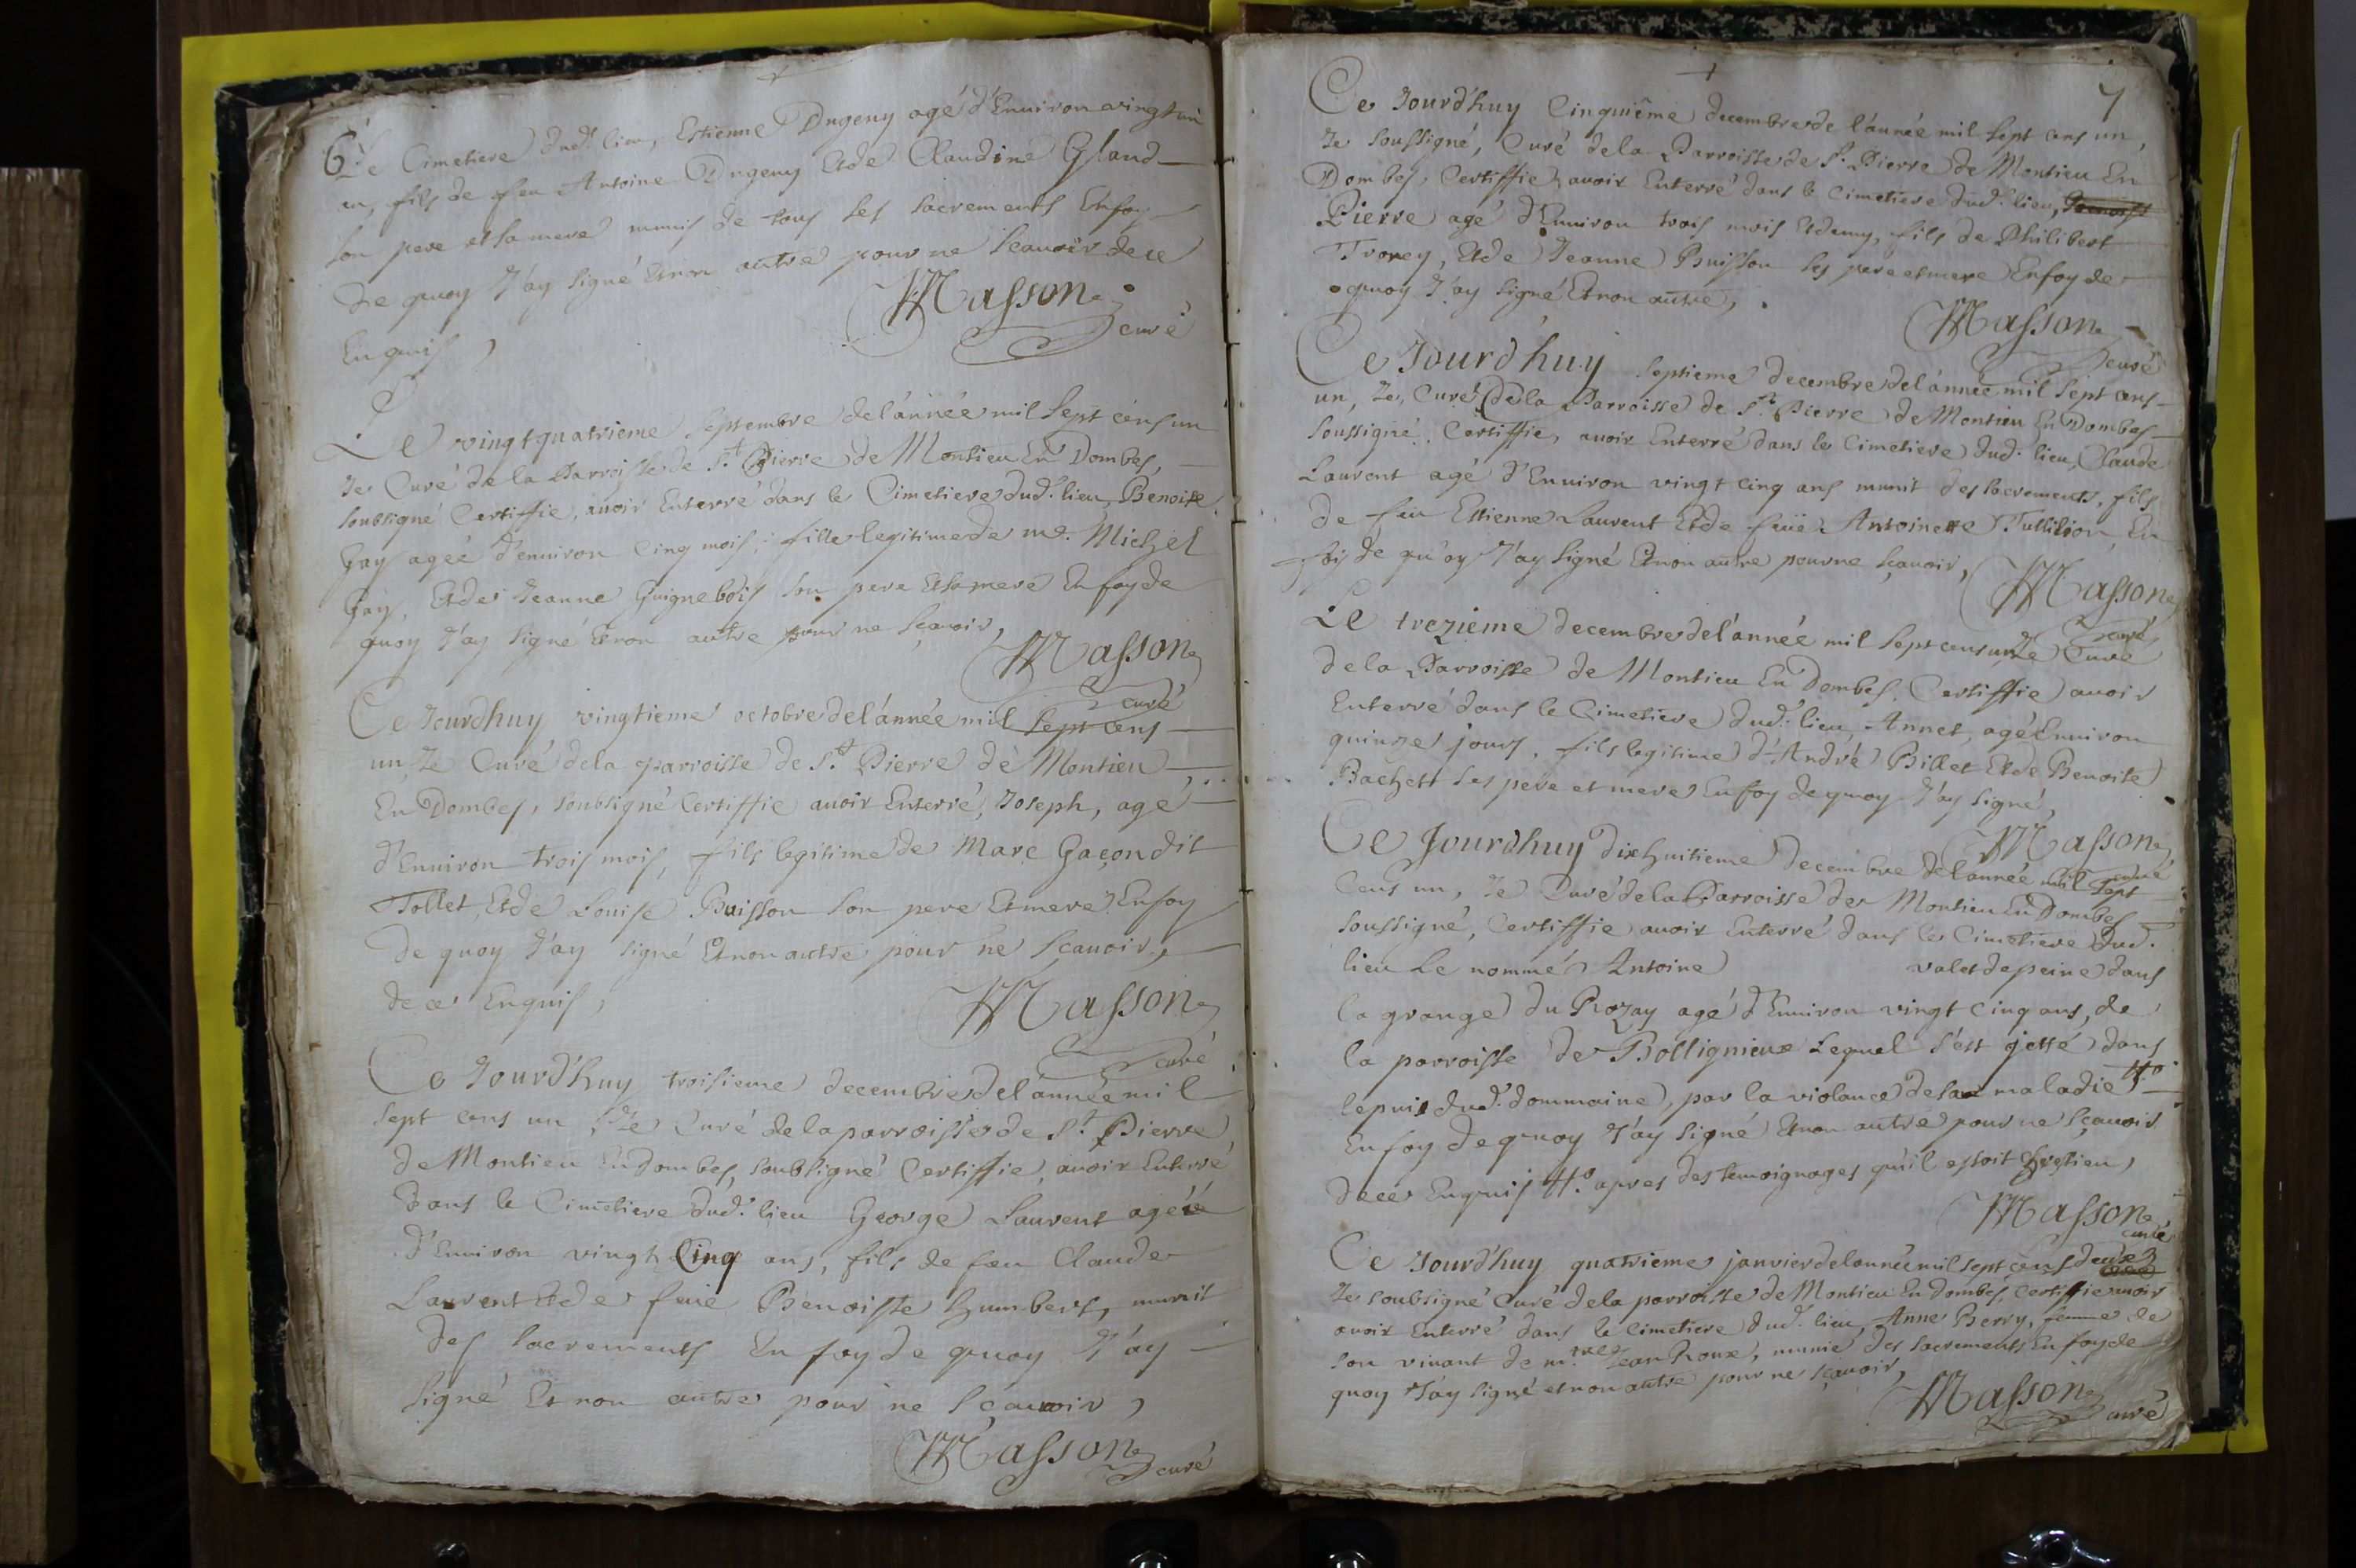 6
Le Cimetiere dud. lieu, Estienne Dugeny agé d'Enuiron vingt un
an, fils de feu Antoine Dugeny Et de Claudine Gland
son pere et sa mere munis de tous ses sacrements En foy
de quoy J'ay signé Et non autre pour ne Scauoir de ce
Enquis,
Masson
curé
Le vingt quatrieme septembre de l'année mil sept cens un
Je Curé de la Parroisse de St. Pierre de Montieu En Dombes,
soubsigné Certiffie, auoir Enterré dans le Cimetiere dud. lieu, Benoite
Gay ageé d'enuiron Cinq mois, fille legitime de me. Michel
Gay, Et de Jeanne Guignebois son pere Et sa mere En foy de
quoy J'ay signé Et non autre pour ne sçauoir,
Masson
curé
Ce Jourd'huy vingtieme octobre de l'année mil sept cens
un, Je Curé de la parroisse de St. Pierre de Montieu
En Dombes, soubsigné Certiffie auoir Enterré, Joseph, agé
d'Enuiron trois mois, fils legitime de Marc Gaçon dit
Tollet, Et de Louise Buisson son pere Et mere En foy
de quoy J'ay signé Et non autre pour ne sçauoir,
de ce Enquis,
Masson
curé
Ce Jourd'huy troisieme decembre de l'année mil
sept cens un, Je Curé de la parroisse de St. Pierre
de Montieu En dombes, soubsigné Certiffie, auoir Enterré
dans le Cimetiere dud. lieu George Laurent agé
d'Enuiron vingt Cinq ans, fils de feu Claude
Laurent Et de feüe Benoiste humbert, munit
des sacrements En foy de quoy J'ay
signé Et non autre pour ne sçauoir,
Masson
curé
7
Ce Jourd'huy Cinquiême decembre de l'année mil sept cens un,
Je soussigné, Curé de la Parroisse de St. Pierre de Montieu En
Dombes, Certiffie, auoir Enterré dans le Cimetiere dud. lieu,
Pierre agé d'Enuiron trois mois Et demy, fils de Philibert
Trorey, Et de Jeanne Buisson ses pere et mere En foy de
quoy J'ay signé Et non autre,
Masson
curé
Ce Jourd'huy septieme decembre de l'année mil sept cens
un, Je, Curé de la Parroisse de St. Pierre de Montieu En Dombes
soussigné, Certiffie, auoir Enterré dans le Cimetiere dud. lieu, Claude
Laurent agé d'Enuiron vingt cinq ans munit des sacrements, fils
de feu Estienne Laurent Et de feüe Antoinette Tullilion, En
foy de quoy J'ay signé Et non autre pour ne sçauoir,
Masson
curé
Le trezieme decembre de l'année mil sept cens un Je Curé
de la Parroisse de Montieu En Dombes, Certiffie auoir
Enterré dans le Cimetiere dud. lieu, Annet, agé Enuiron
quinze jours, fils legitime d'André Billet Et de Benoite
Bachett ses pere et mere En foy de quoy J'ay signé,
Masson
curé
Ce Jourd'huy dix huitieme Decembre de l'année mil sept
Cens un, Je Curé de la Parroisse de Montieu En Dombes
soussigné, Certiffie auoir Enterré dans le Cimetiere Dud.
lieu Le nommé Antoine valet de peine dans
la grange du Rozay agé d'Enuiron vingt cinq ans, de
la parroisse de Bollignieux Lequel s'est jetté dans
le puis dud. dommaine, par la violance de sa maladie #
En foy de quoy J'ay signé Et non autre pour ne sçauoir
de ce Enquis # apres des temoignages qu'il estoit Chretien,
Masson
curé
Ce Jourd'huy quatrieme janvier de l'année mil sept cens deux
Je soubsigné Curé de la parroisse de Montieu En Dombes, Certiffie auoir
auoir Enterré dans le Cimetiere dud. lieu Anne Berry, femme de
son viuant de m.tre Jean Roux, munie des sacrements En foy de
quoy J'ay signé et non autre pour ne sçauoir,
Masson
curé